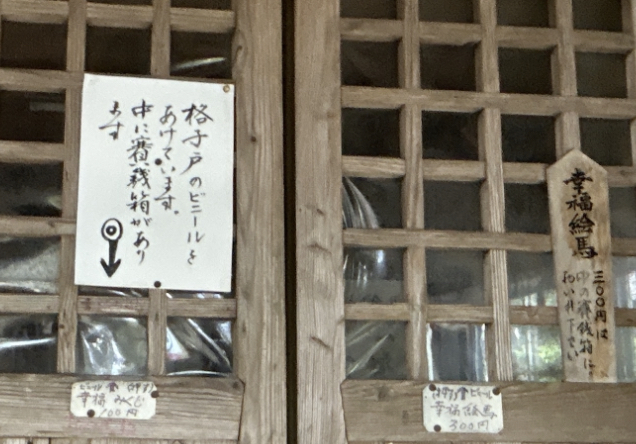 格子戸のビニールを
あけています。
中に賽銭箱があり
ます
幸福絵馬
三〇〇円は
中の賽銭箱に
お入れ下さい
幸福みくじ
100円
幸福絵馬
300円